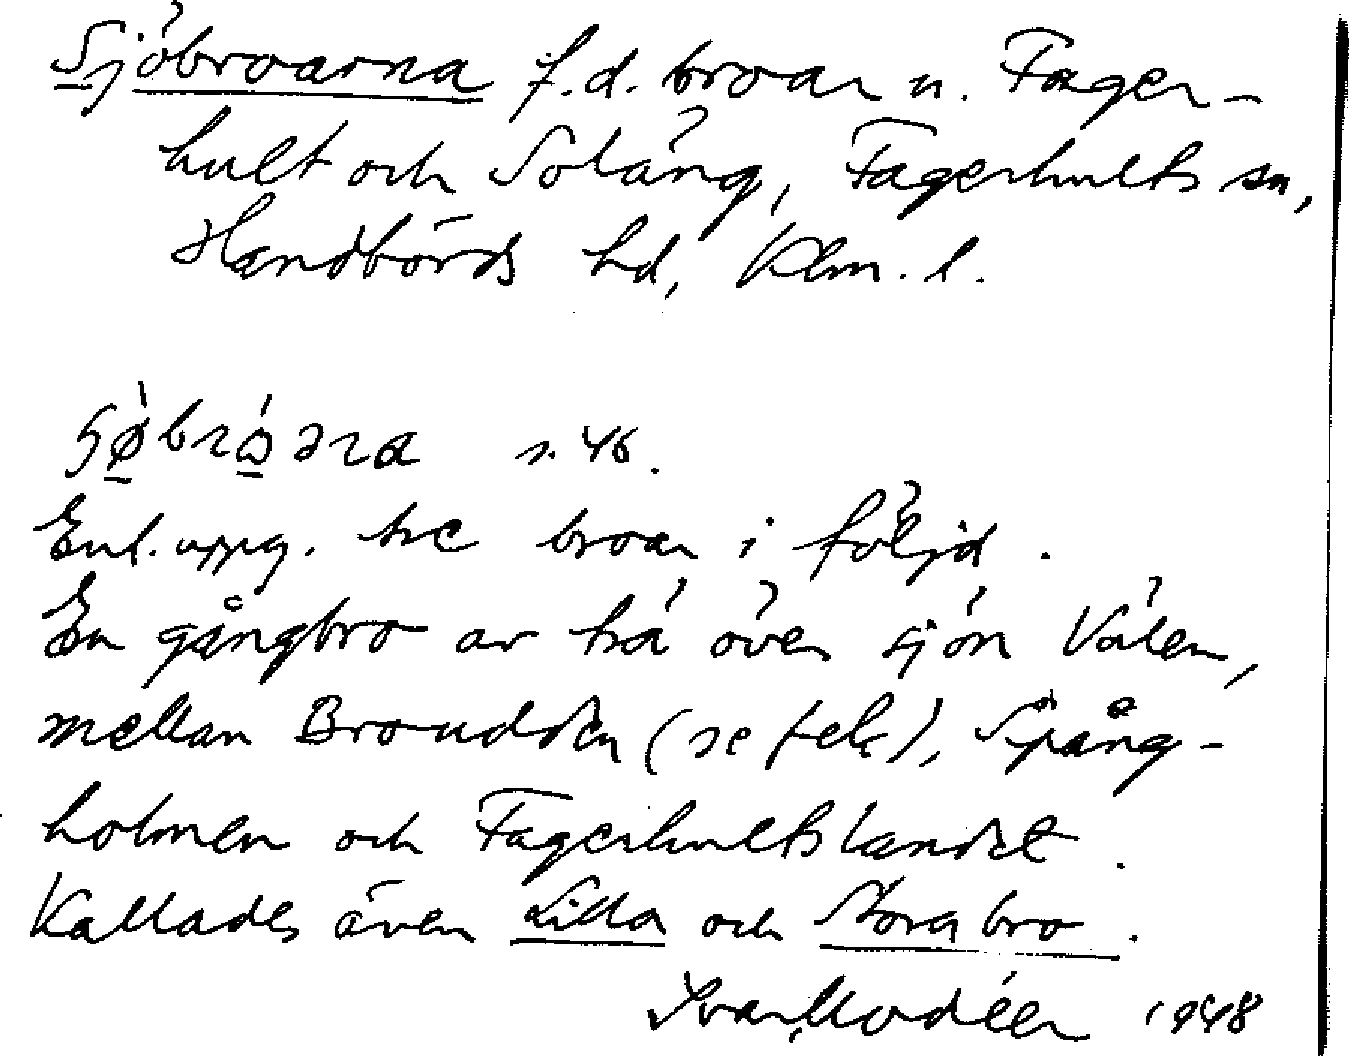 Sjöbroarna f.d. broar n. Fager-
hult och Soläng, Fagerhults sn,
Handbörds hd, Klm. l.
s. 46.
Enl. uppg. tre broar i följd.
En gångbro av trä över sjön Välen,
mellan Broudden (se felk), Spång-
holmen och Fagerhultslandet.
Kallades även Lilla och Stora bro.
Ivar Modéer 1948